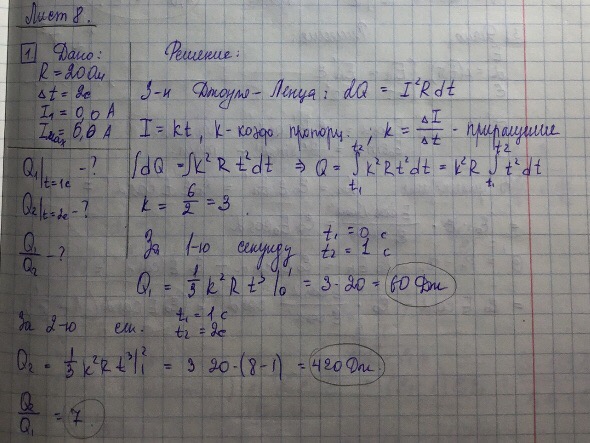 Лист 8.
1 Дано:
R = 20 Ом
Δt = 2c
I₁ = 0,0 А
Imax = 6,0 А
Q₁|t=1c - ?
Q₂|t=2c - ?
Q₁/Q₂ - ?
Решение:
З-н Джоуля-Ленца: dQ = I²Rdt
I = kt, k-коэф пропорц. ; k = ΔI/Δt - приращение
∫dQ = ∫k²R t²dt ⇒ Q = ∫t₁t₂ k²Rt²dt = k²R ∫t₁t₂ t²dt
k = 6/2 = 3
За 1-ю секунду t₁ = 0 c
t₂ = 1 c
Q₁ = 1/3 k²R t³|₀¹ = 3·20 = 60 Дж
За 2-ю сек. t₁ = 1 c
t₂ = 2c
Q₂ = 1/3 k²R t³|₁² = 3 20·(8-1) = 420 Дж
Q₂/Q₁ = 7